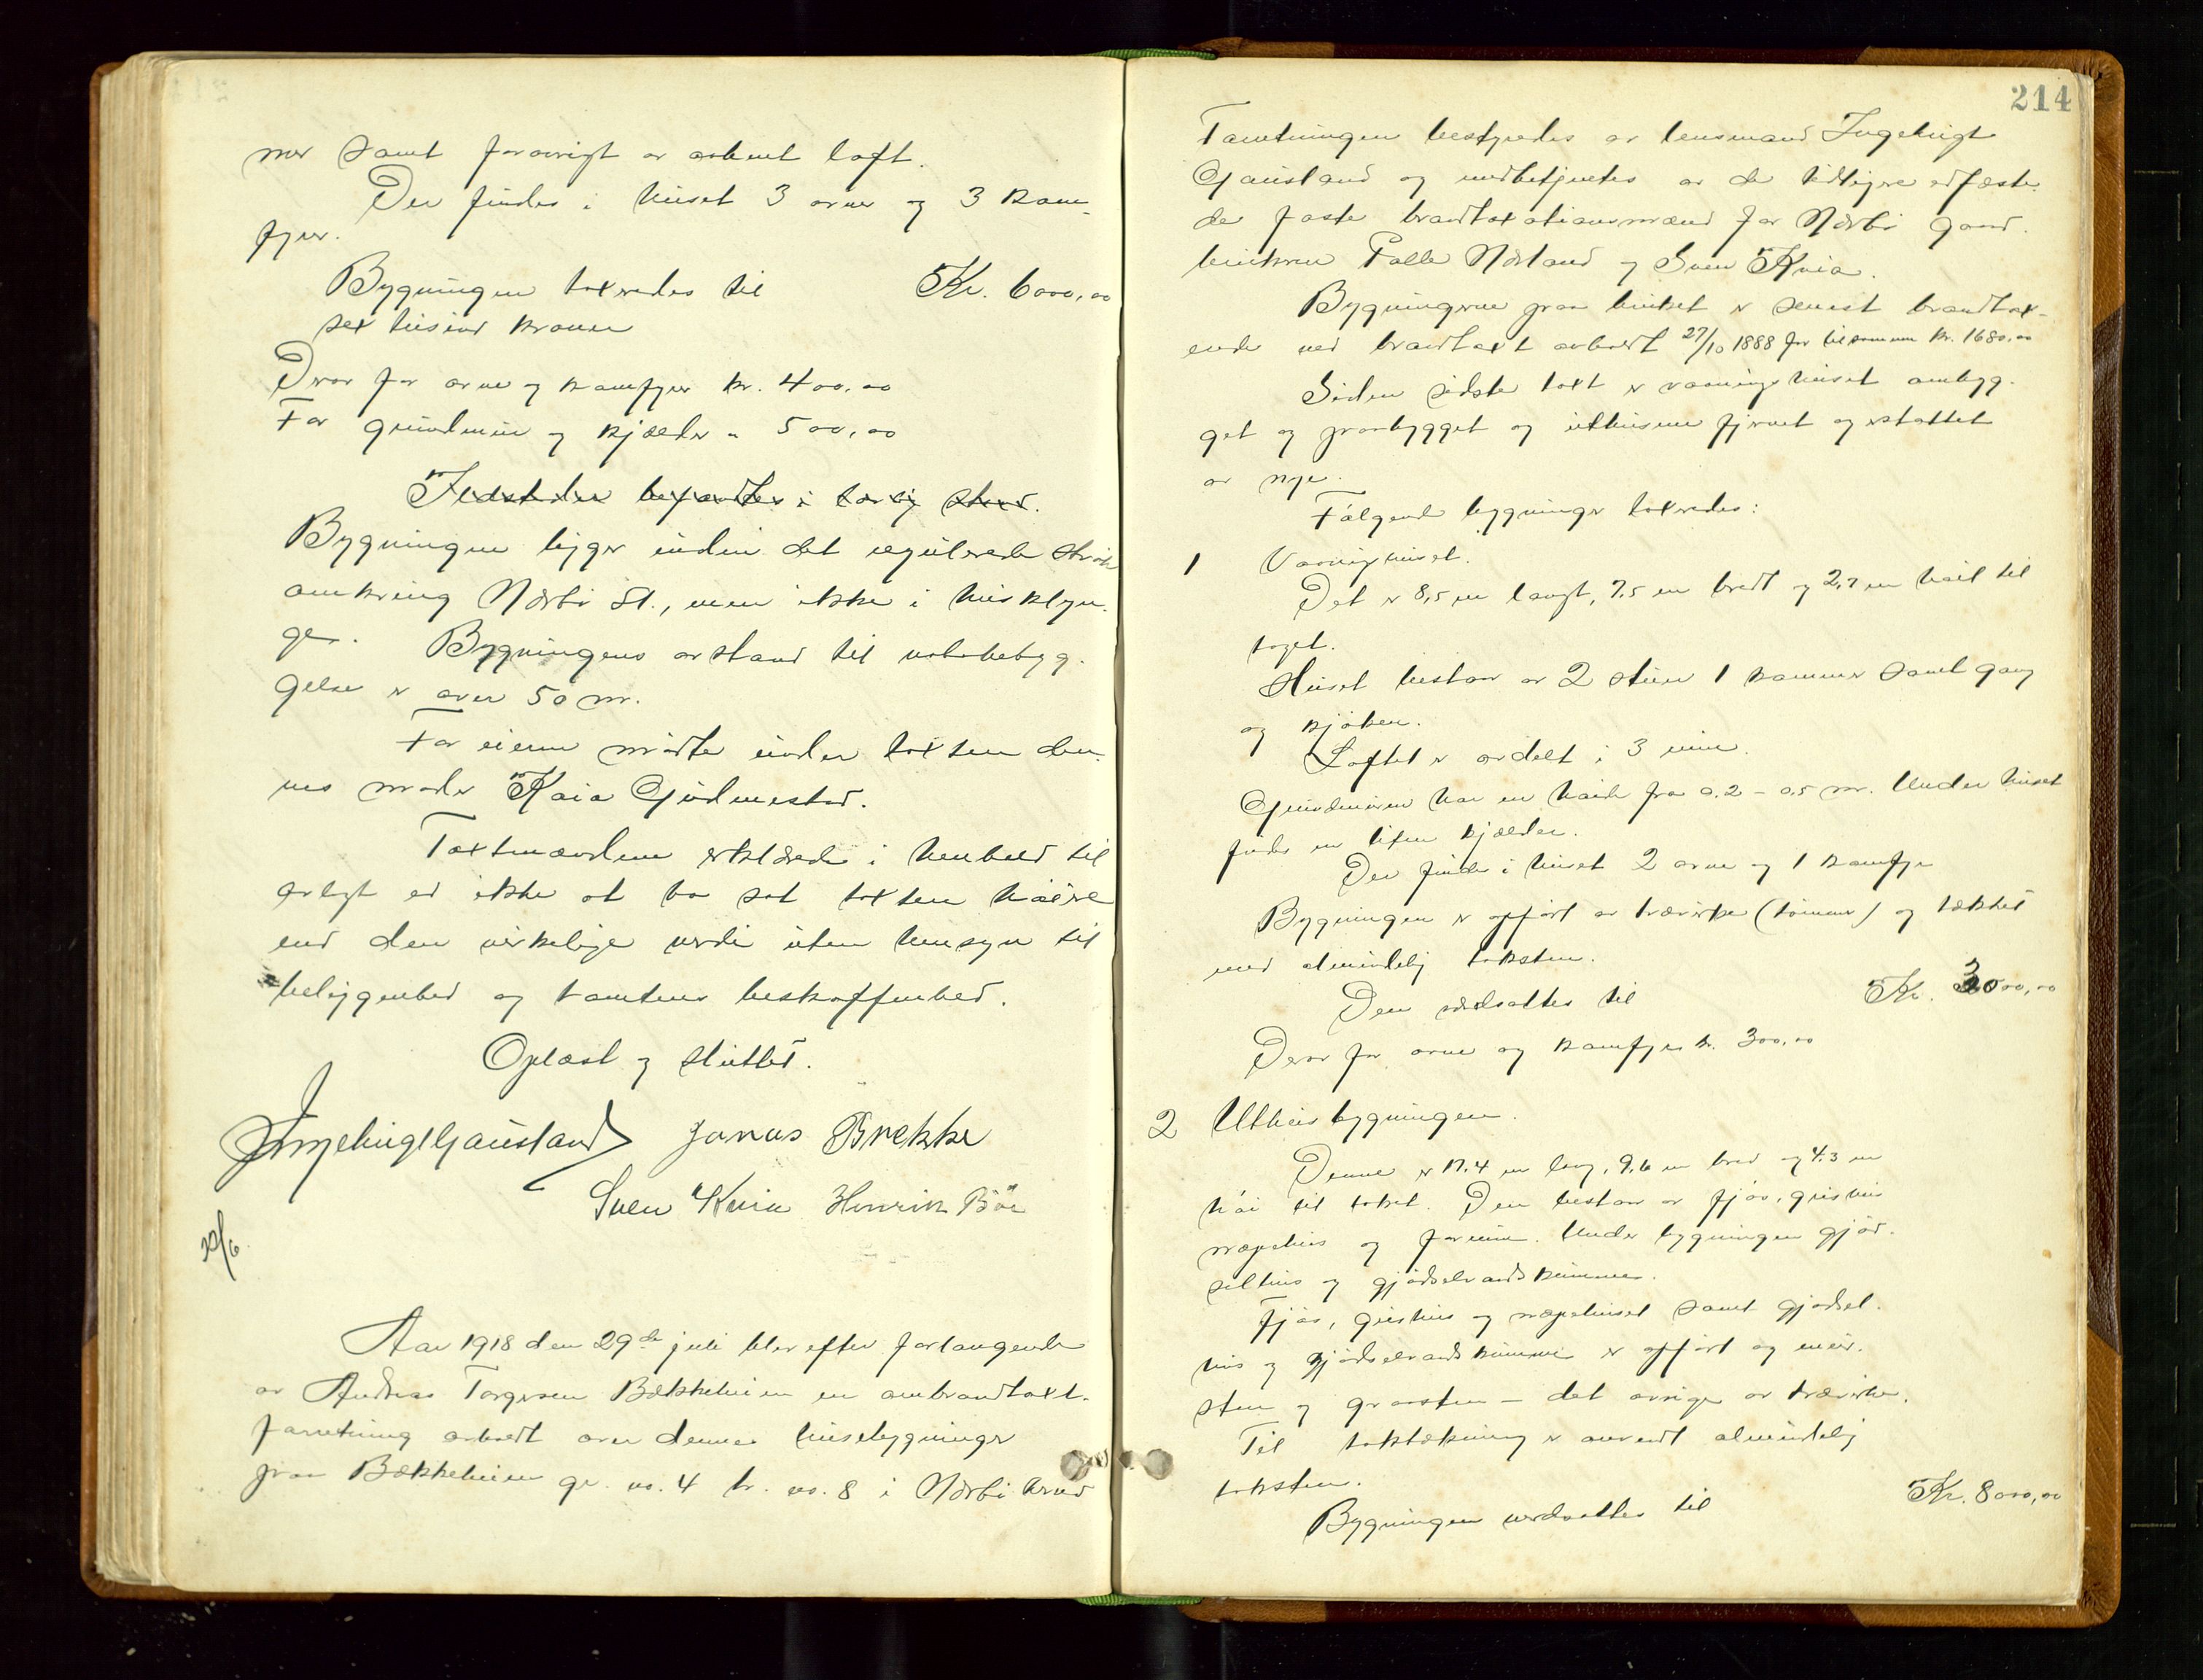 mer samt forøvrigt av aapent loft.
Der findes i huset 3 ovner og 3 kom-
fyrer.
Bygningen taxeredes til Kr. 6000,00
sex tusind kroner
Derav for ovne og komfyrer kr. 400,00
For grundmur og kjælder " 500,00
Ildsteder befandtes i lovlig stand.
Bygningen ligger inden det regulerede strøk
omkring Nærbø St., men ikke i husklyn-
ge. Bygningens avstand til nabobebyg-
gelse er over 50 m.
For eieren mødte under taxten den-
nes moder Kaia Gudmestad.
Taxtmændene erklærede i henhold til
avlagt ed ikke at ha sat taxten høiere
end den virkelige verdi uten hensyn til
beliggenhed og tomtens beskaffenhed.
Oplæst og sluttet.
Ingebrigt Gausland Jonas Brekke
Sven Kvia Henrik Bøe
22/6.
Aar 1918 den 29de juli blev efter forlangende
av Andreas Torgersen Bækkeheien en ombrandtaxt-
forretning avholdt over dennes husebygninger
paa Bækkeheien gr. no. 4 br. no. 8 i Nærbø herred
214
Forretningen bestyredes av lensmand Ingebrigt
Gausland og medbetjentes av de tidligere edfæste-
de faste brandtaxationsmænd for Nærbø Gaard-
brukerne Palle Nærland og Sven Kvia.
Bygningerne paa bruket er senest brandtax-
erede ved brandtaxt avholdt 27/10 1888 for tilsammen kr. 1680,00
Siden sidste taxt er vaaningshuset ombyg-
get og paabygget og uthusene fjernet og erstattet
av nye.
Følgende bygninger taxeredes:
1 Vaaningshuset.
Det er 8,5 m langt, 7,5 m bredt og 2,7 m høit til
taget.
Huset bestaar av 2 stuer 1 kammer samt gang
og kjøken.
Loftet er avdelt i 3 rum.
Grundmuren har en høide fra 0.2 - 0.5 m. Under huset
findes en liten kjælder.
Der findes i huset 2 ovne og 1 komfyr
Bygningen er opført av trævirke (tømmer) og tækket
med almindelig taksten.
Den verdsattes til Kr. 3000,00
Derav for ovne og komfyr kr. 300,00
2 Uthusbygningen.
Denne er 17.4 m lang, 9,6 m bred og 4.3 m
høi til taket. Den bestaar av fjøs, grishus
næpehus og forrum. Under bygningen gjød-
selhus og gjødselvandskumme.
Fjøs, grishus og næpehuset samt gjødsel-
hus og gjødselvandskumme er opført og mur-
sten og graasten - det øvrige av trævirke.
Til taktækning er anvendt almindelig
taksten.
Bygningen verdsattes til Kr. 8000,00